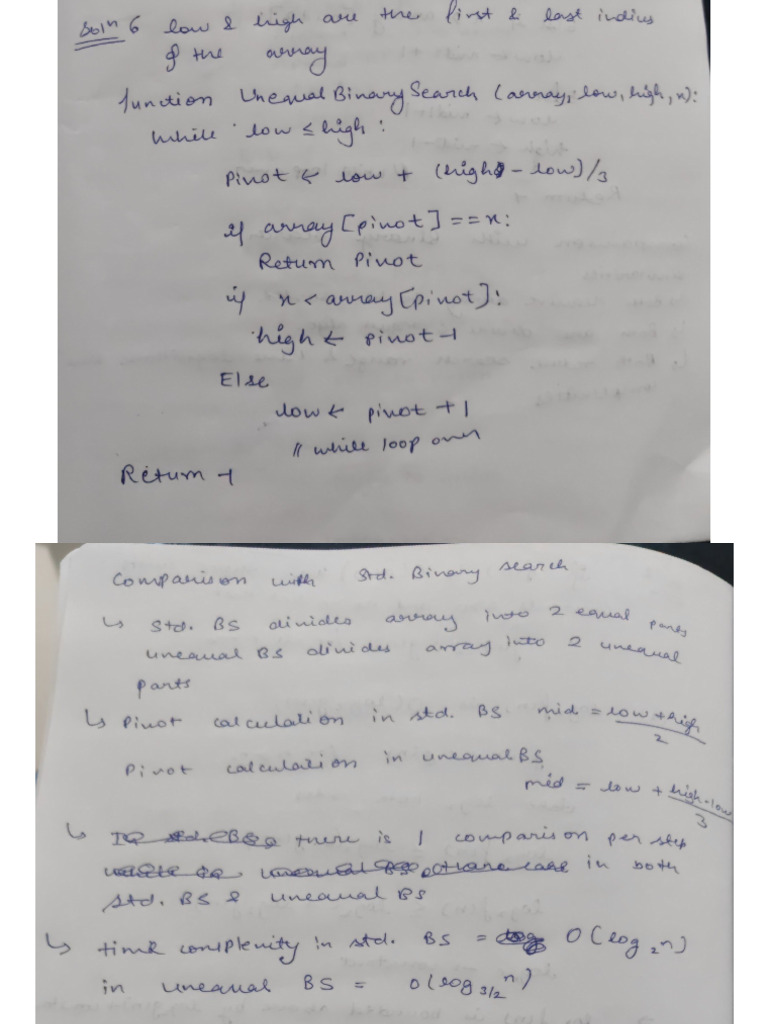 Solⁿ 6 low & high are the first & last indius
of the array
function UnequalBinarySearch (array, low, high, x):
while low ≤ high :
Pivot ← low + (high - low)/3
if array [pivot] == x:
Return Pivot
if x < array [pivot]:
high ← pivot -1
Else
low ← pivot +1
// while loop over
Return -1
Comparison with Std. Binary search
↳ Std. BS divides array into 2 equal parts
unequal BS divides array into 2 unequal
parts
↳ Pivot calculation in std. BS mid = (low + high)/2
Pivot calculation in unequal BS
mid = low + (high - low)/3
↳ there is 1 comparison per step
in both
std. BS & unequal BS
↳ time complexity in std. BS = O(log₂n)
in unequal BS = O(log 3/2 n)